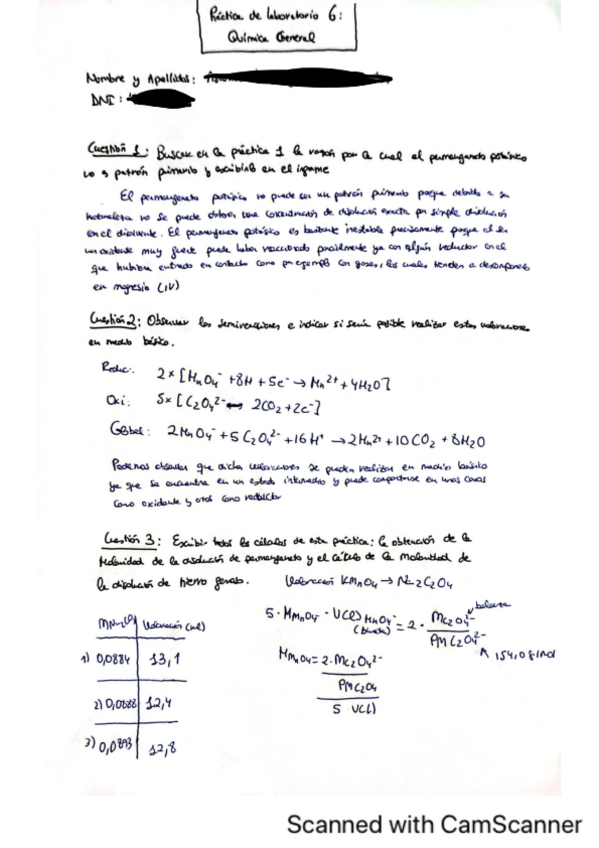 Práctica de laboratorio 6:
Química General
Nombre y Apellidos:
DNI:
Cuestión 1: Buscar en la práctica 1 la razón por la cual el permanganato potásico
no es patrón primario y escribirlo en el informe
El permanganato potásico no puede ser un patrón primario porque debido a su
naturaleza no se puede obtener una concentración de disolución exacta por simple disolución
en el disolvente. El permanganato potásico es bastante inestable precisamente porque al ser
un oxidante muy fuerte puede haber reaccionado parcialmente ya con algún reductor con el
que hubiera entrado en contacto como por ejemplo con gases, los cuales tienden a descomponerlo
en magnesio (IV)
Cuestión 2: Observar las semirreacciones e indicar si sería posible realizar estas valoraciones
en medio básico.
Reduc: 2 x [MnO4- + 8H + 5e- → Mn2+ + 4H2O]
Oxi: 5 x [C2O4 2- → 2CO2 + 2e-]
Global: 2MnO4- + 5C2O4 2- + 16H+ → 2Mn2+ + 10CO2 + 8H2O
Podemos observar que dichas valoraciones se pueden realizar en medio básico
ya que se encuentra en un estado intermedio y puede comportarse en unos casos
como oxidante y otros como reductor
Cuestión 3: Escribir todos los cálculos de esta práctica: la obtención de la
Molaridad de la disolución de permanganato y el cálculo de la Molaridad de
la disolución de hierro
Valoración KMnO4 → Na2C2O4
Valoración (ml)
1) 0,0884 13,1
2) 0,0888 12,4
3) 0,0893 12,8
5 · MMnO4- · V(l) MnO4- (bureta) = 2 · mC2O4 2- / PM C2O4 2-
MMnO4 = 2 · mC2O4 2- / PMC2O4 / 5 V(l)
Scanned with CamScanner